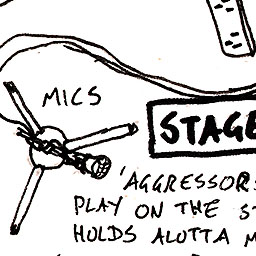 MICS
STAGE
'AGGRESSORS
PLAY ON THE
HOLDS ALOTTA